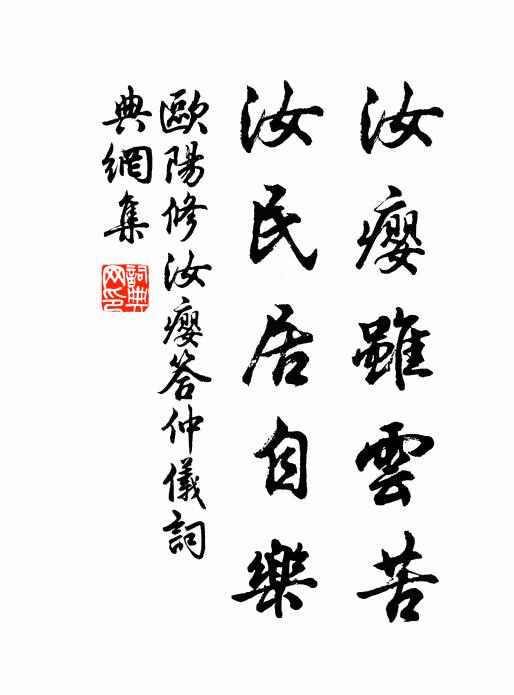 汝癭雖雲苦
汝民居自樂
歐陽修汝癭答仲儀詞
典網集
詞典
网印